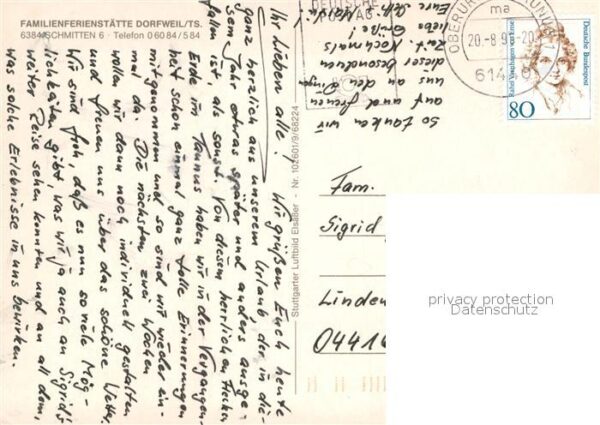 FAMILIENFERIENSTÄTTE DORFWEIL/TS.
6384 SCHMITTEN 6 · Telefon 0 60 84 / 5 84
Ihr Lieben alle! Wir grüßen Euch heute
ganz herzlich aus unserem Urlaub, der in die-
sem Jahr etwas später und anders ausge-
fallen ist als sonst. Von diesem herrlichen Flecken
Erde im Taunus haben wir in der Vergangen-
heit schon einmal ganz tolle Erinnerungen
mitgenommen und so sind wir wieder ein-
mal da. Die nächsten zwei Wochen
wollen wir dann noch individuell gestalten
und freuen uns über das schöne Wetter.
Wir sind froh, daß es nun so viele Mög-
lichkeiten gibt, was wir ja auch an Sigrid's
weiter Reise sehen konnten und an all dem,
was solche Erlebnisse in uns bewirken.
So tanken wir
auf und freuen
uns an den Dingen
dieser besonderen
Zeit. Nochmals
liebe Grüße!
Eure
Stuttgarter Luftbild Elsäßer - Nr. 102601/9/68224
DEUTSCHE
POSTAG
OBERURSEL (TAUNUS)
ma
20.-8.9
-20
6144
Deutsche Bundespost
Rahel Varnhagen von Ense
80
Fam.
Sigrid
Linden
04416
privacy protection
Datenschutz